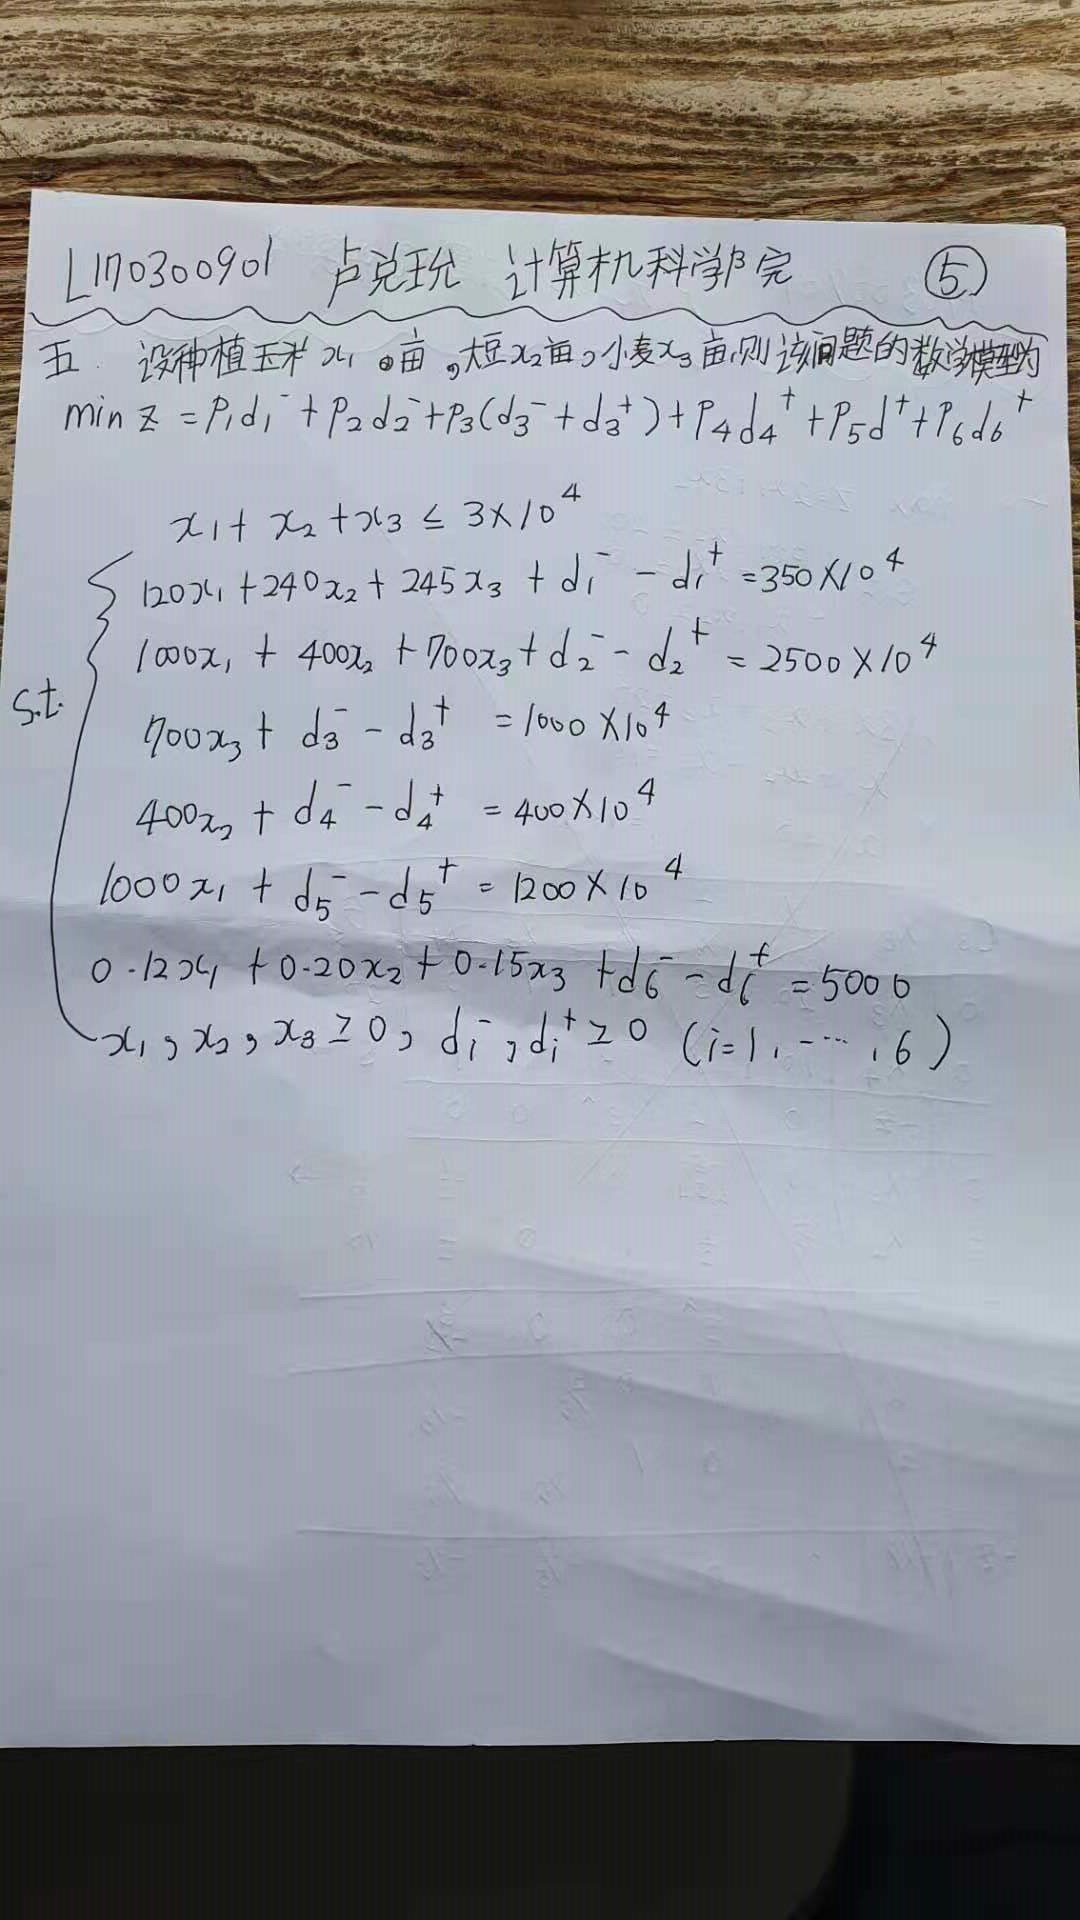 L170300901 卢兑玧 计算机科学学院 ⑤
五. 设种植玉米 x₁ 亩,大豆x₂亩,小麦x₃亩,则该问题的数学模型为
min z = P₁d₁⁻ + P₂d₂⁻ + P₃(d₃⁻ + d₃⁺) + P₄d₄⁺ + P₅d⁺ + P₆d₆⁺
x₁ + x₂ + x₃ ≤ 3×10⁴
120x₁ + 240x₂ + 245x₃ + d₁⁻ - d₁⁺ = 350×10⁴
1000x₁ + 400x₂ + 700x₃ + d₂⁻ - d₂⁺ = 2500×10⁴
s.t.
700x₃ + d₃⁻ - d₃⁺ = 1000×10⁴
400x₂ + d₄⁻ - d₄⁺ = 400×10⁴
1000x₁ + d₅⁻ - d₅⁺ = 1200×10⁴
0.12x₁ + 0.20x₂ + 0.15x₃ + d₆⁻ - d₆⁺ = 5000
x₁, x₂, x₃ ≥ 0, dᵢ⁻, dᵢ⁺ ≥ 0 (i=1, ..., 6)